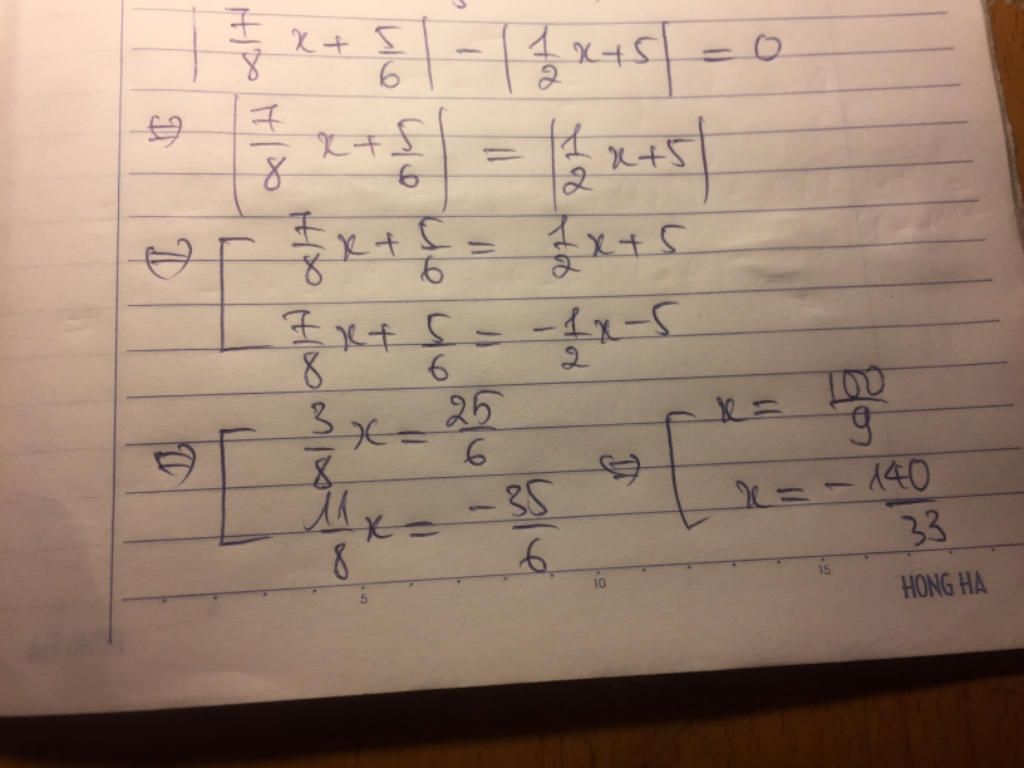 |7/8 x + 5/6| - |1/2 x + 5| = 0
⇔ |7/8 x + 5/6| = |1/2 x + 5|
⇔ [ 7/8 x + 5/6 = 1/2 x + 5
7/8 x + 5/6 = -1/2 x - 5
⇔ [ 3/8 x = 25/6 ⇔ [ x = 100/9
11/8 x = -35/6 x = -140/33
5 10 15
HONG HA